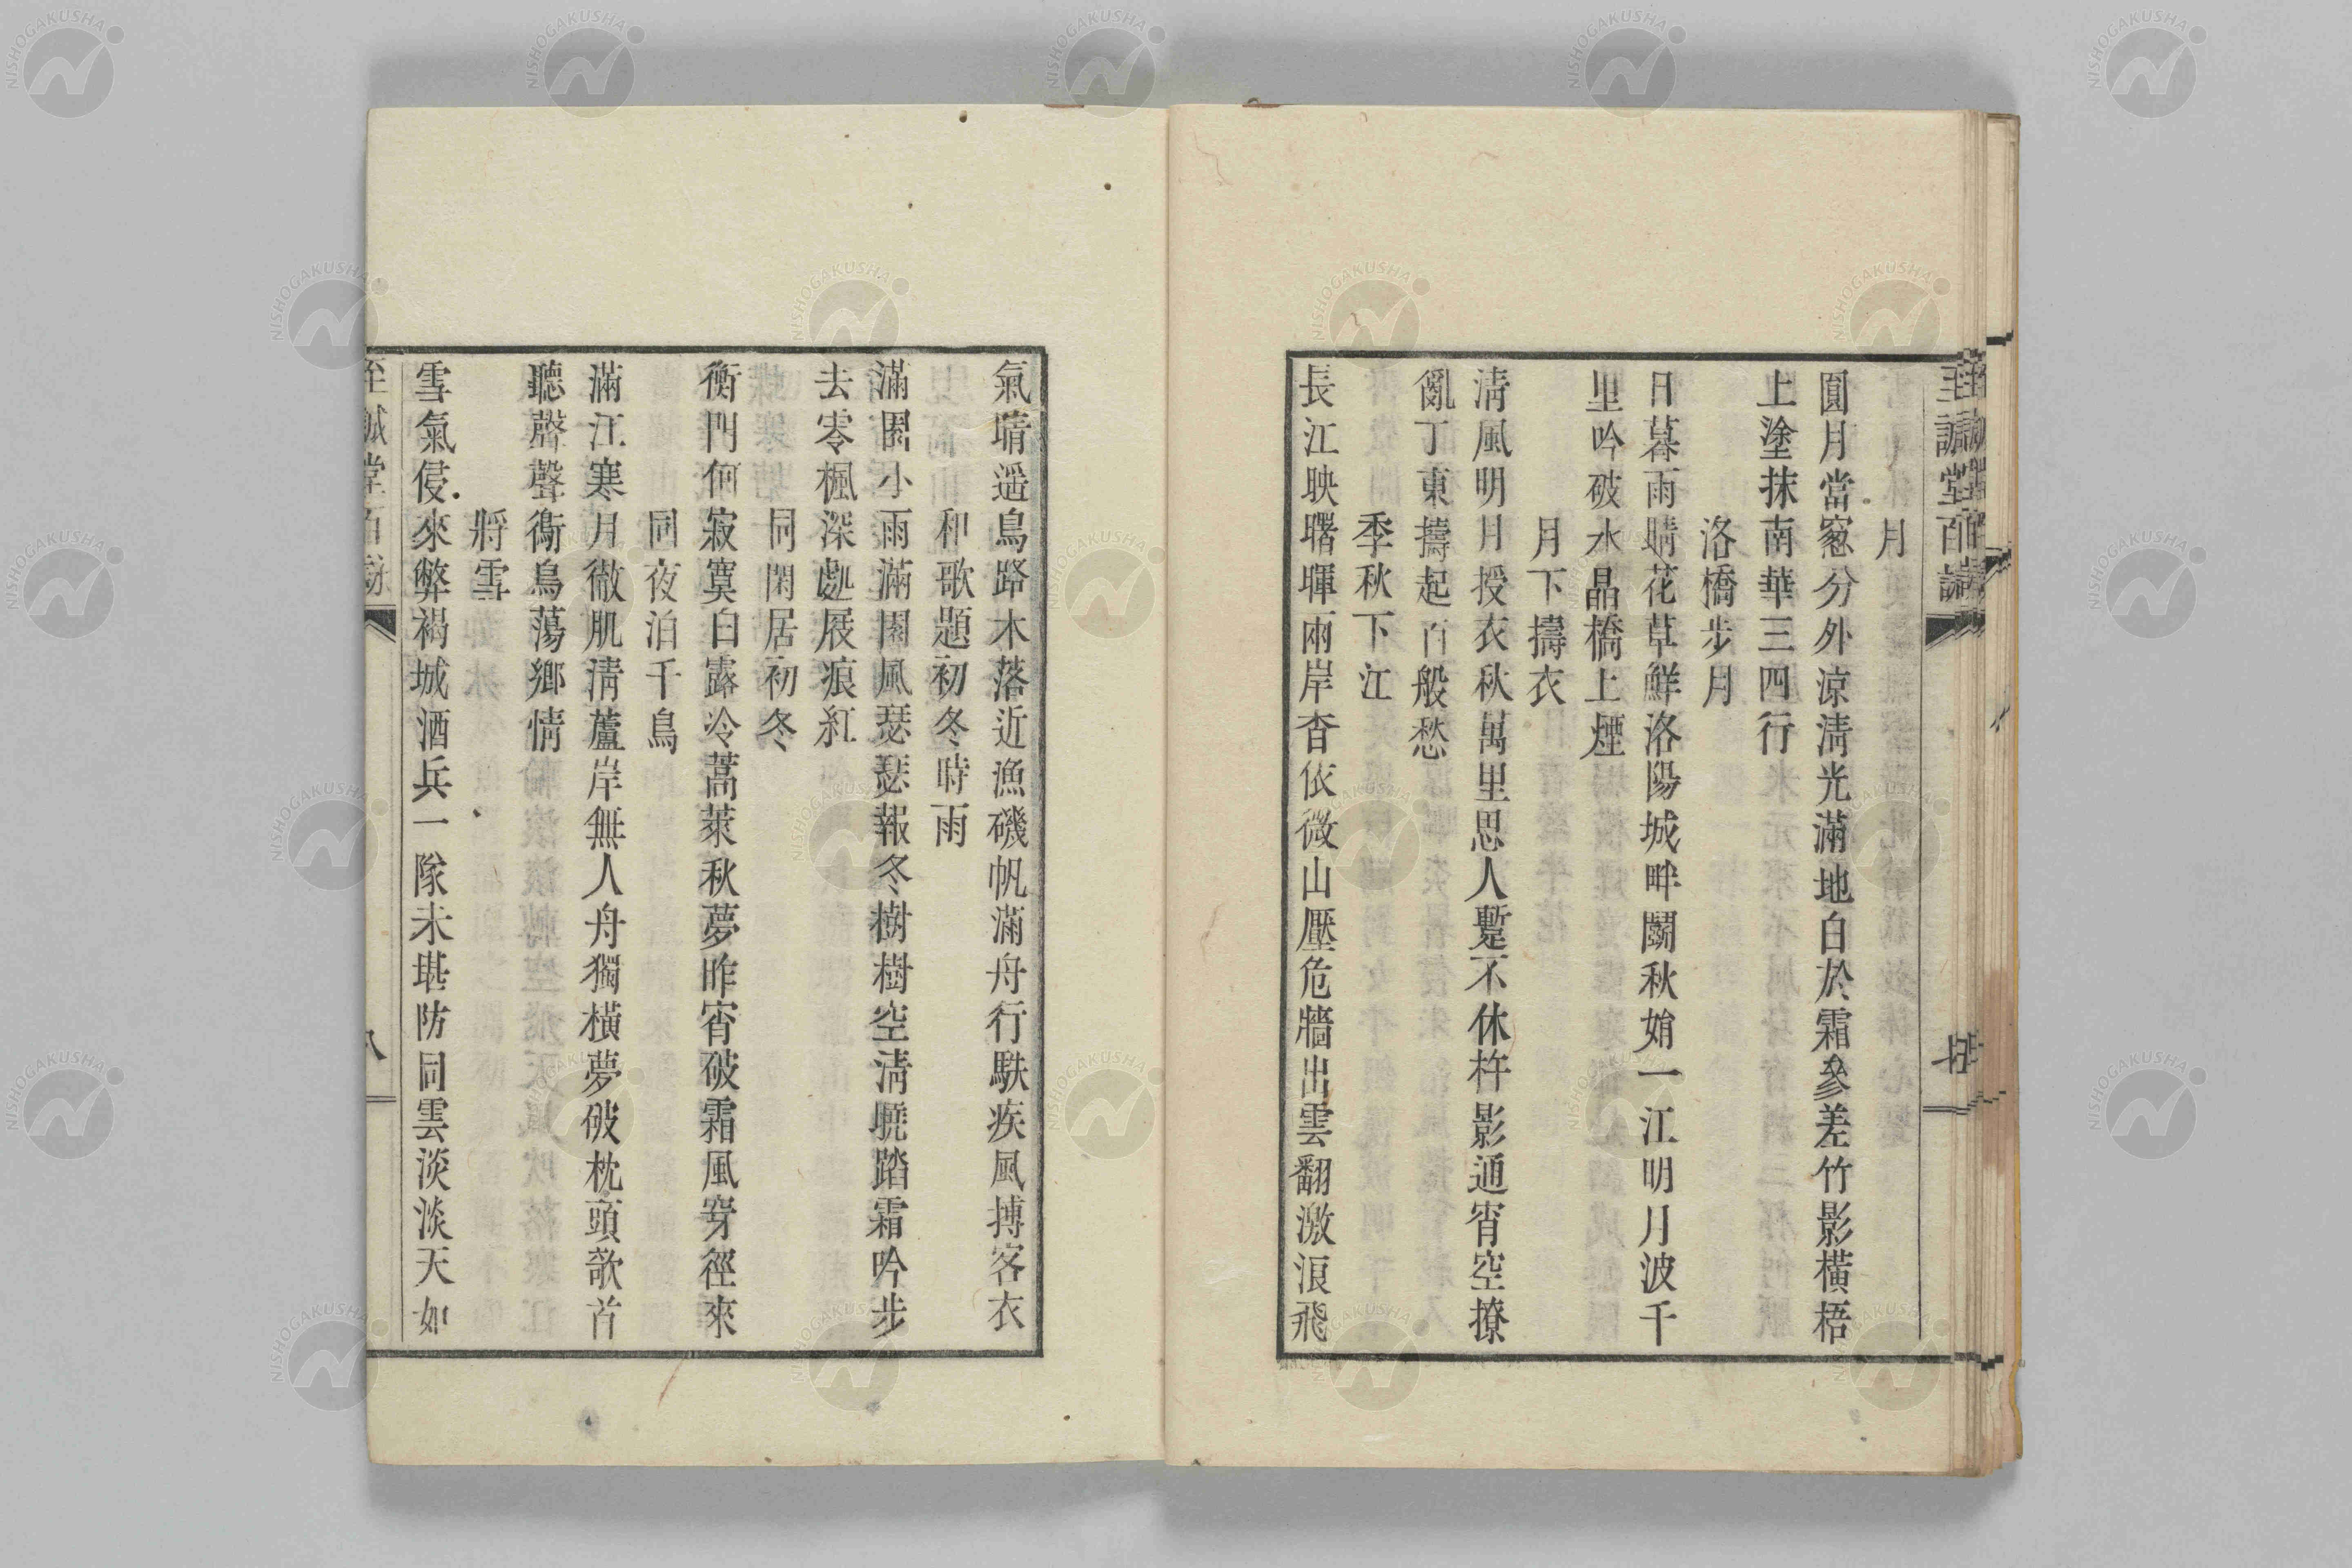 月
圓月當窓分外涼淸光滿地白於霜參差竹影橫梧
上塗抹南華三四行
洛橋步月
日暮雨晴花草鮮洛陽城畔鬭秋娟一江明月波千
里吟破水晶橋上煙
月下擣衣
淸風明月授衣秋萬里思人蹔不休杵影通宵空撩
亂丁東擣起百般愁
季秋下江
長江映曙暉兩岸杳依微山壓危牆出雲翻激浪飛
氣晴遥鳥路木落近漁磯帆滿舟行駃疾風搏客衣
和歌題初冬時雨
滿園小雨滿園風瑟瑟報冬樹樹空淸曉踏霜吟步
去零楓深處屐痕紅
同閑居初冬
衡門何寂寞白露冷蒿萊秋夢昨宵破霜風穿徑來
同夜泊千鳥
滿江寒月徹肌淸蘆岸無人舟獨橫夢破枕頭欹首
聽聲聲衡鳥蕩鄉情
將雪
雪氣侵來弊褐城酒兵一隊未堪防同雲淡淡天如
至誠堂百詠
八